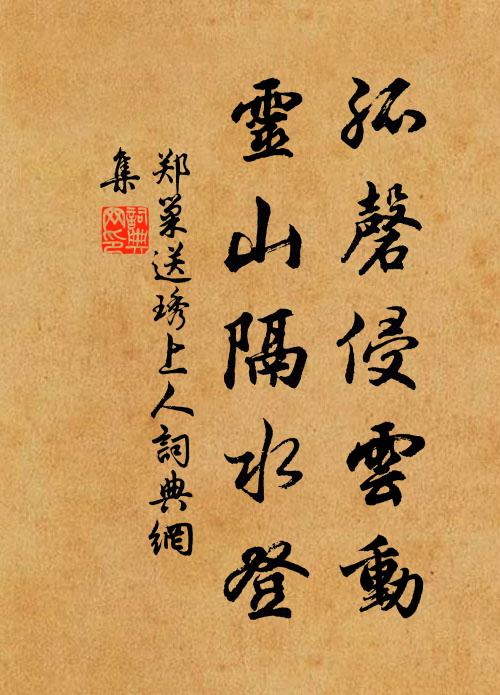 孤磬侵雲動
靈山隔水登
郑巢送琇上人詞典網
集
詞典
网印